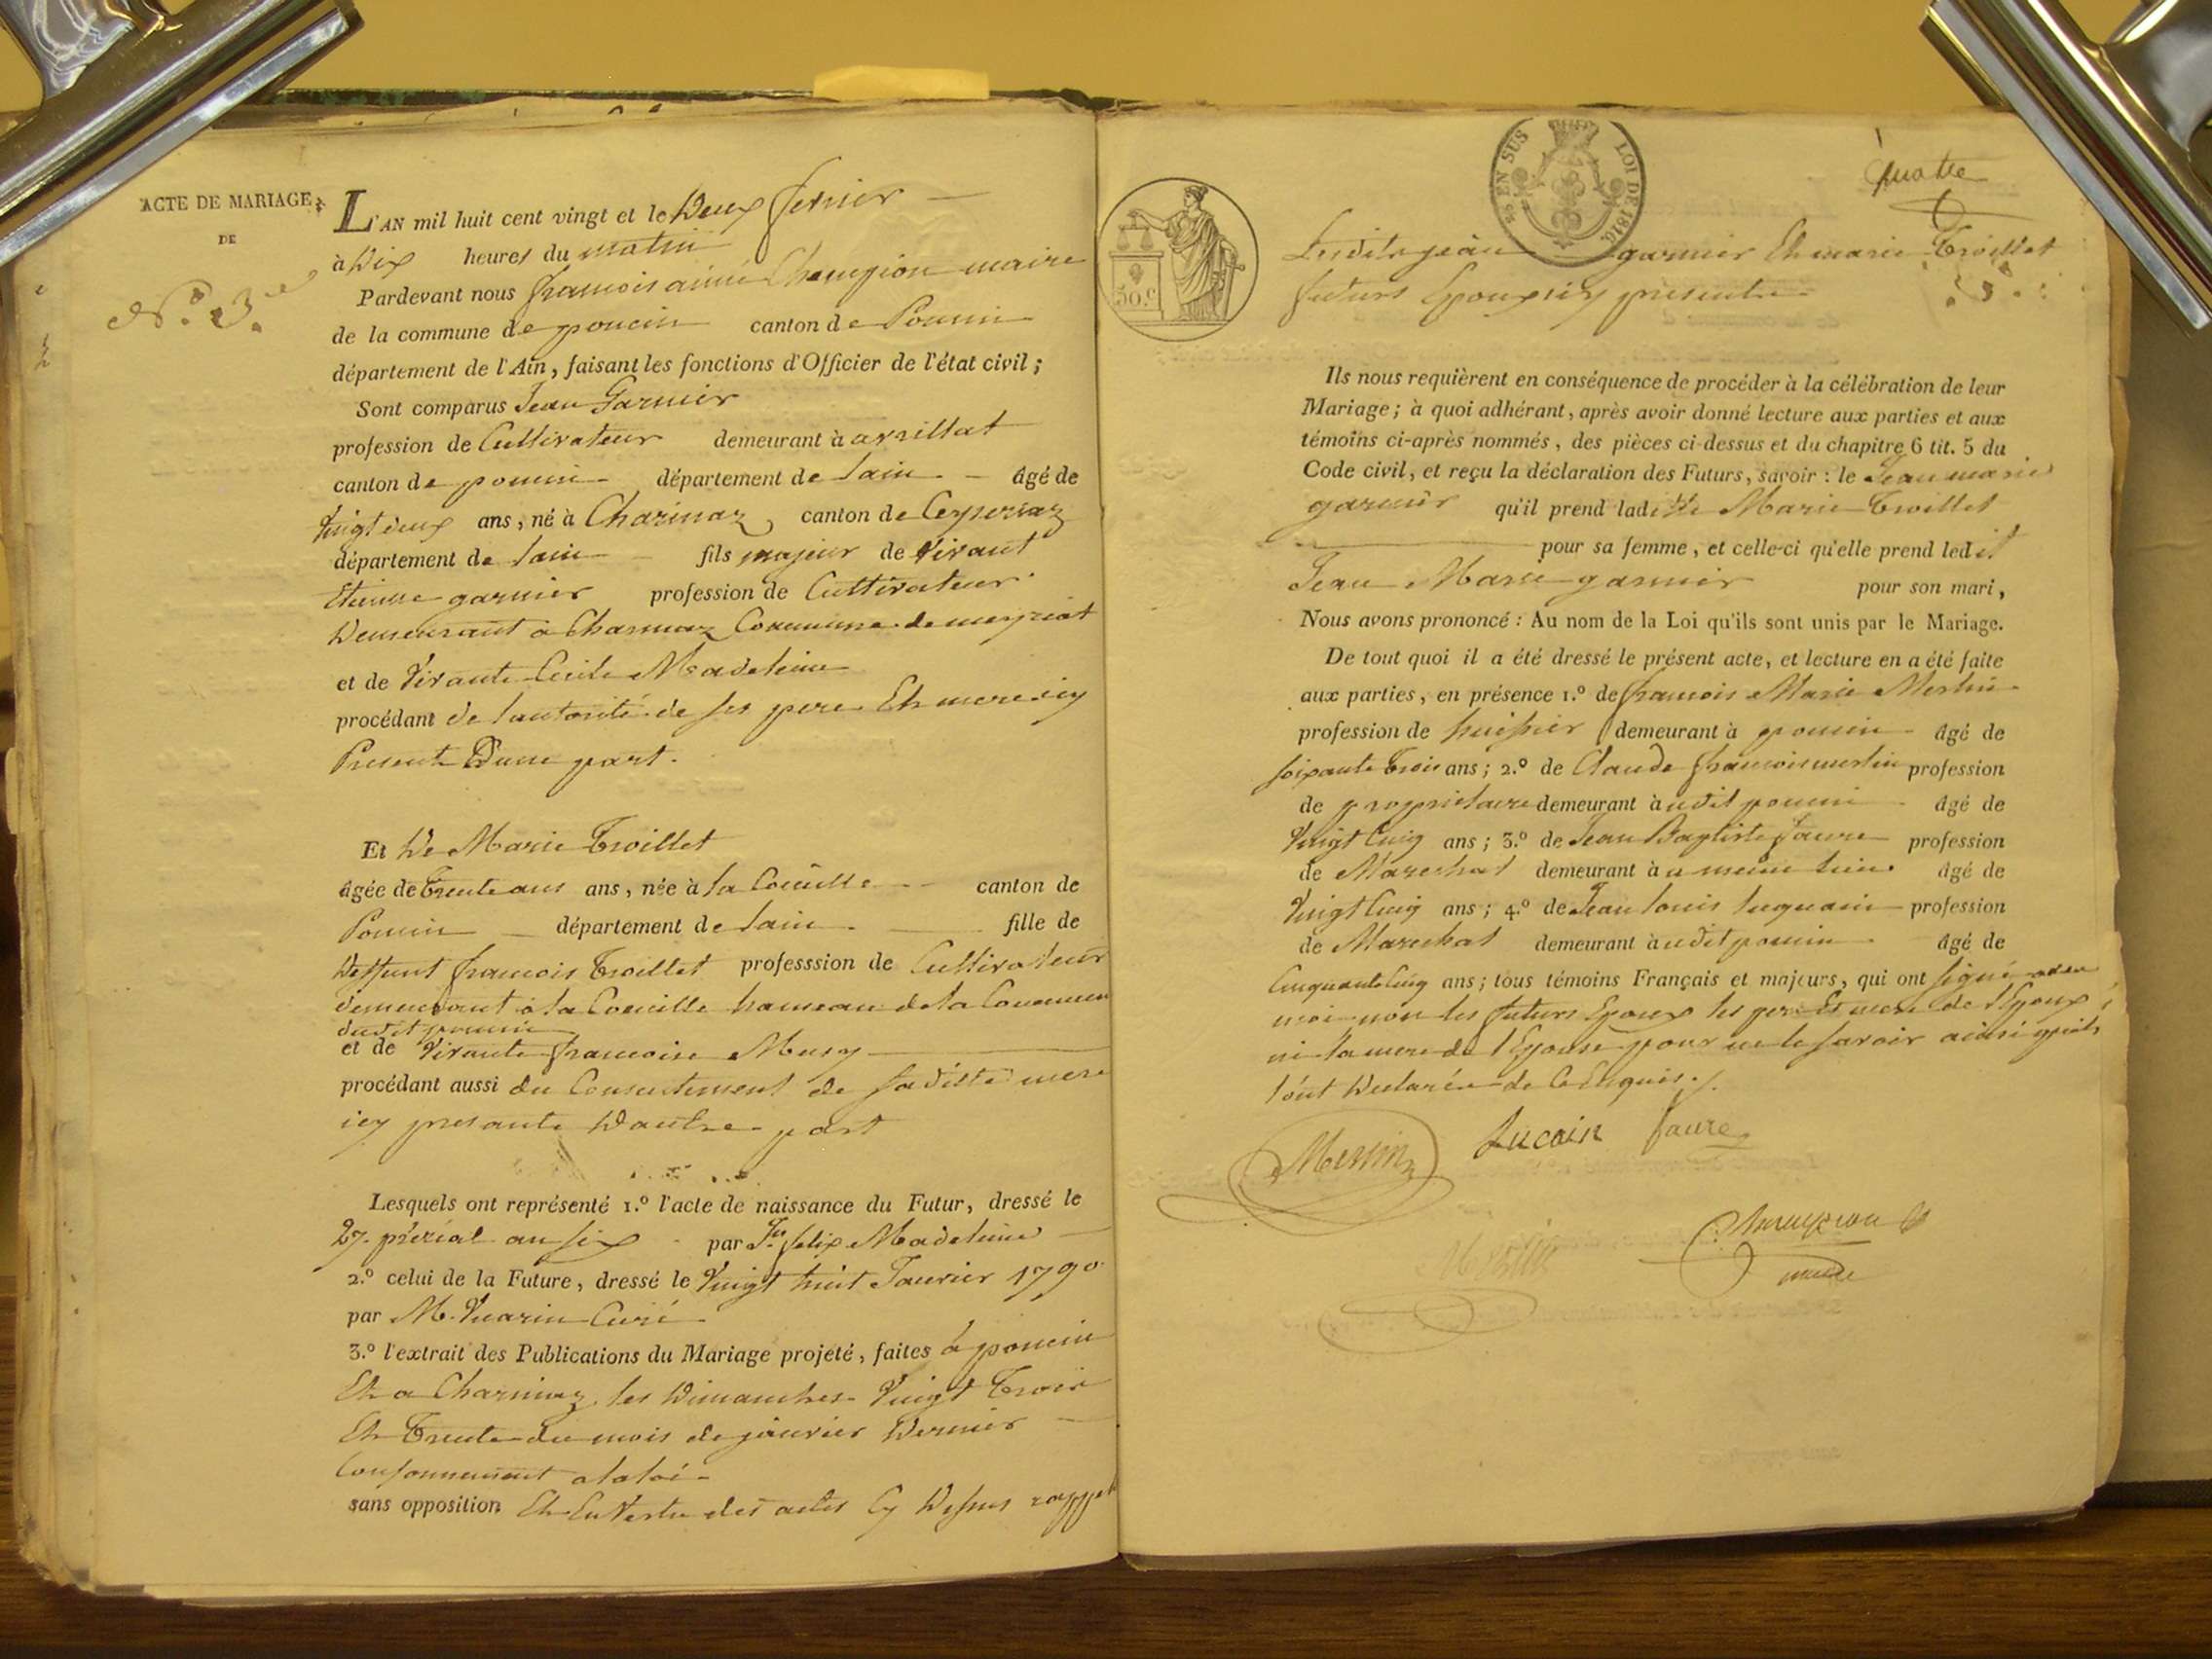 ACTE DE MARIAGE
DE
N.º 3.e
L'AN mil huit cent vingt et le Deux fevrier
à Dix heures du matin
Pardevant nous francois aimé Champion maire
de la commune de poncin canton de Poncin
département de l'Ain, faisant les fonctions d'Officier de l'état civil;
Sont comparus Jean Garnier
profession de Cultivateur demeurant à
canton de poncin département de lain âgé de
Vingt deux ans, né à Charinaz canton de Ceyzeriaz
département de lain fils majeur de Vivant
Etienne garnier profession de Cultivateur
Demeurant a Charinaz Commune de meyriat
et de Vivante Cecile Madeleine
procédant de lautorité de ses pere Et mere icy
Present Dune part.
Et De Marie Troillet
âgée de Trente ans ans, née à la Coeuille canton de
Poncin département de lain fille de
Deffunt francois Troillet professsion de Cultivateur
demeurant a la Coeuille hameau de la Commune
dudit poncin
et de Vivante francoise Musy
procédant aussi du Consentement de saditte mere
icy presante Dautre part
Lesquels ont représenté 1.º l'acte de naissance du Futur, dressé le
27. prérial an six par felix Madeleine
2.º celui de la Future, dressé le Vingt huit Janvier 1790
par M. Vuarin Curé
3.º l'extrait des Publications du Mariage projeté, faites à poncin
Et a Charinaz les Dimanches Vingt Trois
Et Trente du mois de janvier Dernier
Conformement a la loi
sans opposition Et En Vertu des actes Cy Dessus
50.C
EN SUS LOI DE 1816.
quatre
Lesdits jean garnier Et marie Troillet
futurs Epoux icy presents
Ils nous requièrent en conséquence de procéder à la célébration de leur
Mariage; à quoi adhérant, après avoir donné lecture aux parties et aux
témoins ci-après nommés, des pièces ci-dessus et du chapitre 6 tit. 5 du
Code civil, et reçu la déclaration des Futurs, savoir: le Jean marie
garnier qu'il prend laditte Marie Troillet
pour sa femme, et celle-ci qu'elle prend ledit
Jean Marie garnier pour son mari,
Nous avons prononcé: Au nom de la Loi qu'ils sont unis par le Mariage.
De tout quoi il a été dressé le présent acte, et lecture en a été faite
aux parties, en présence 1.º de francois Marie Merlin
profession de huissier demeurant à poncin âgé de
soixante trois ans; 2.º de Claude francois merlin profession
de proprietaire demeurant à udit poncin âgé de
Vingt Cinq ans; 3.º de Jean Baptiste faure profession
de Mareshal demeurant à u meme lieu âgé de
Vingt Cinq ans; 4.º de Jean louis profession
de Mareshal demeurant à udit poncin âgé de
Cinquante Cinq ans; tous témoins Français et majeurs, qui ont signé avec
moi non les futurs Epoux les pere Et mere de l'Epoux
ni la mere de l'Epouse pour ne le savoir ainsi quils
lont Declarée de ce Enquis./.
Merlin Lucain faure
Merlin Champion
maire